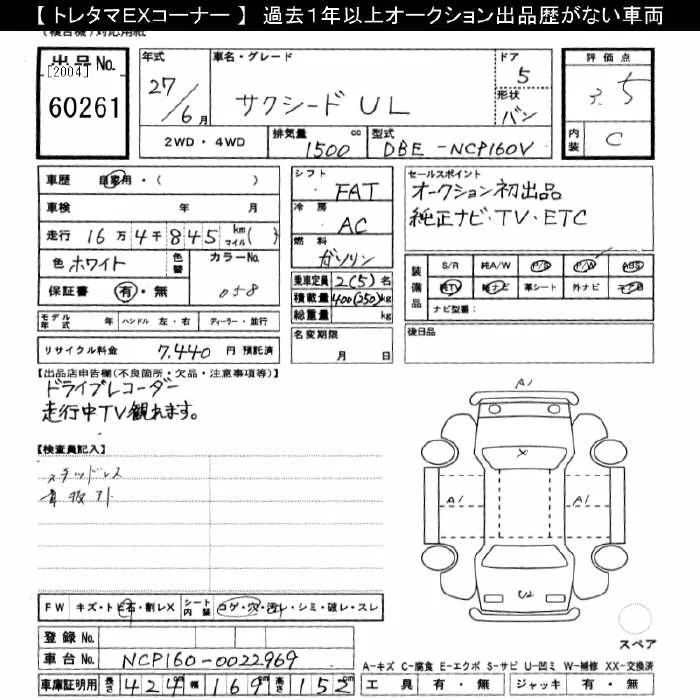 【 トレタマEXコーナー 】 過去1年以上オークション出品歴がない車両
(複合機)対応用紙
出品No.
[2004]
60261
年式
27/6月
車名・グレード
サクシード UL
ドア
5
形状
バン
評価点
3.5
内装
C
2WD・4WD
排気量
1500 cc
型式
DBE-NCP160V
車歴 自家用・( )
車検 年 月
走行 16万4千845 km マイル( )
色 ホワイト 色替
カラーNo. 058
保証書 有・無
シフト
FAT
冷房
AC
燃料
ガソリン
乗車定員 2(5)名
積載量 400(250)kg
総重量 kg
名変期限
月 日
セールスポイント
オークション初出品
純正ナビ・TV・ETC
装備品
S/R 純A/W P/S P/W ABS
純TV 純ナビ 革シート 外ナビ エアB
ナビ型番:
後日品
モデル年式 年 ハンドル 左・右 ディーラー・並行
リサイクル料金 7,440 円 預託済
【出品店申告欄(不良箇所・欠品・注意事項等)】
ドライブレコーダー
走行中TV観れます。
【検査員記入】
スタッドレス
A1
X
A1
A1
U2
スペア
FW キズ・トビ石・割レX シート内装 コゲ・穴・汚レ・シミ・破レ・スレ
登録No.
車台No. NCP160-0022969
車庫証明用 長さ 424cm 幅 169cm 高さ 152cm
A-キズ C-腐食 E-エクボ S-サビ U-凹ミ W-補修 XX-交換済
工具 有・無 ジャッキ 有・無